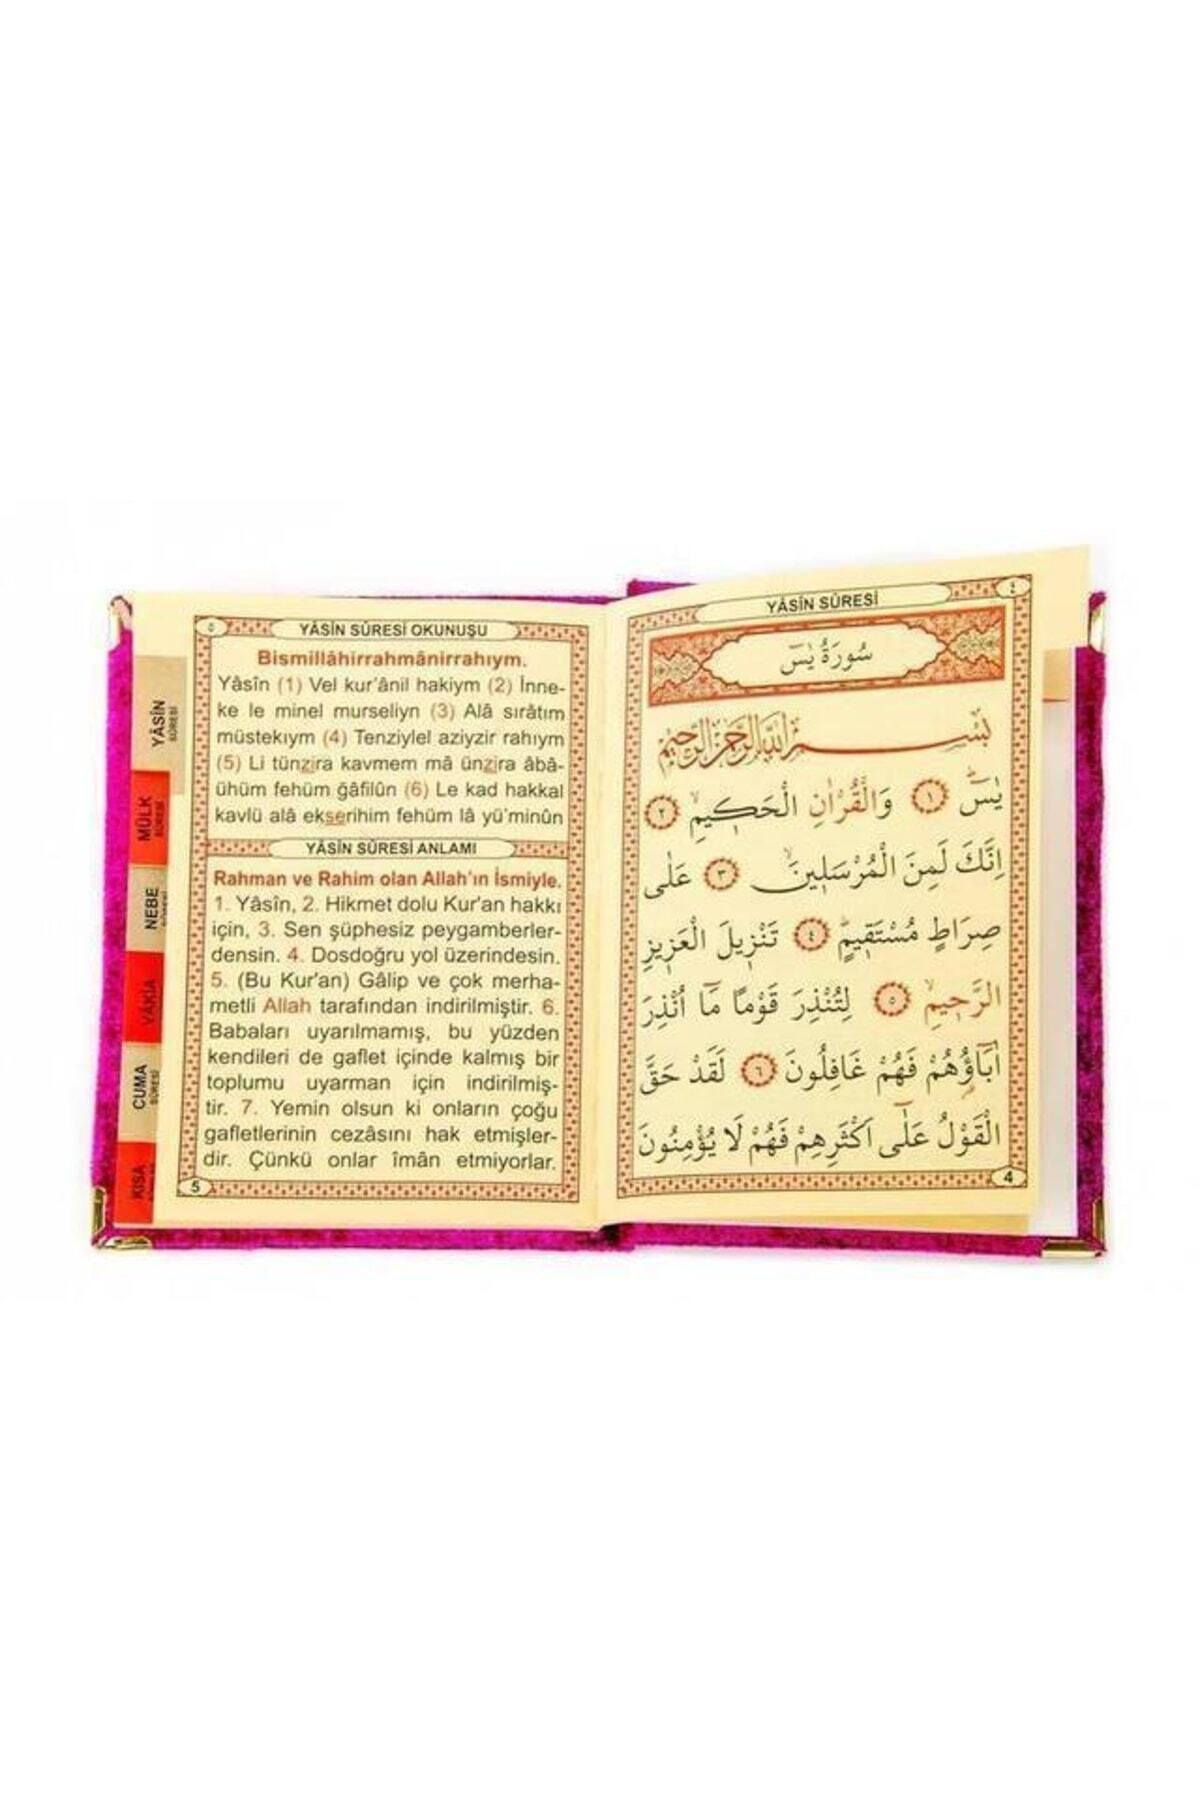 ٥
YÂSÎN SÛRESİ OKUNUŞU
Bismillâhirrahmânirrahıym.
Yâsîn (1) Vel kur'ânil hakiym (2) İnne-
ke le minel murseliyn (3) Alâ sırâtım
müstekıym (4) Tenziylel aziyzir rahıym
(5) Li tünzira kavmem mâ ünzira âbâ-
ühüm fehüm ğâfilûn (6) Le kad hakkal
kavlü alâ ekserihim fehüm lâ yü'minûn
YÂSÎN SÛRESİ ANLAMI
Rahman ve Rahim olan Allah'ın İsmiyle.
1. Yâsîn, 2. Hikmet dolu Kur'an hakkı
için, 3. Sen şüphesiz peygamberler-
densin. 4. Dosdoğru yol üzerindesin.
5. (Bu Kur'an) Gâlip ve çok merha-
metli Allah tarafından indirilmiştir. 6.
Babaları uyarılmamış, bu yüzden
kendileri de gaflet içinde kalmış bir
toplumu uyarman için indirilmiş-
tir. 7. Yemin olsun ki onların çoğu
gafletlerinin cezâsını hak etmişler-
dir. Çünkü onlar îmân etmiyorlar.
5
YÂSÎN
SÛRESİ
MÜLK
SÛRESİ
NEBE
VÂKIA
CUMA
SÛRESİ
KISA
٤
YÂSÎN SÛRESİ
سُورَةُ يٰسٓ
بِسْمِ اللّٰهِ الرَّحْمٰنِ الرَّحِيمِ
يٰسٓ ١ وَالْقُرْاٰنِ الْحَكِيمِ ٢
اِنَّكَ لَمِنَ الْمُرْسَلِينَ ٣ عَلٰى
صِرَاطٍ مُسْتَقِيمٍ ٤ تَنْزِيلَ الْعَزِيزِ
الرَّحِيمِ ٥ لِتُنْذِرَ قَوْمًا مَٓا اُنْذِرَ
اٰبَٓاؤُهُمْ فَهُمْ غَافِلُونَ ٦ لَقَدْ حَقَّ
الْقَوْلُ عَلٰٓى اَكْثَرِهِمْ فَهُمْ لَا يُؤْمِنُونَ
4